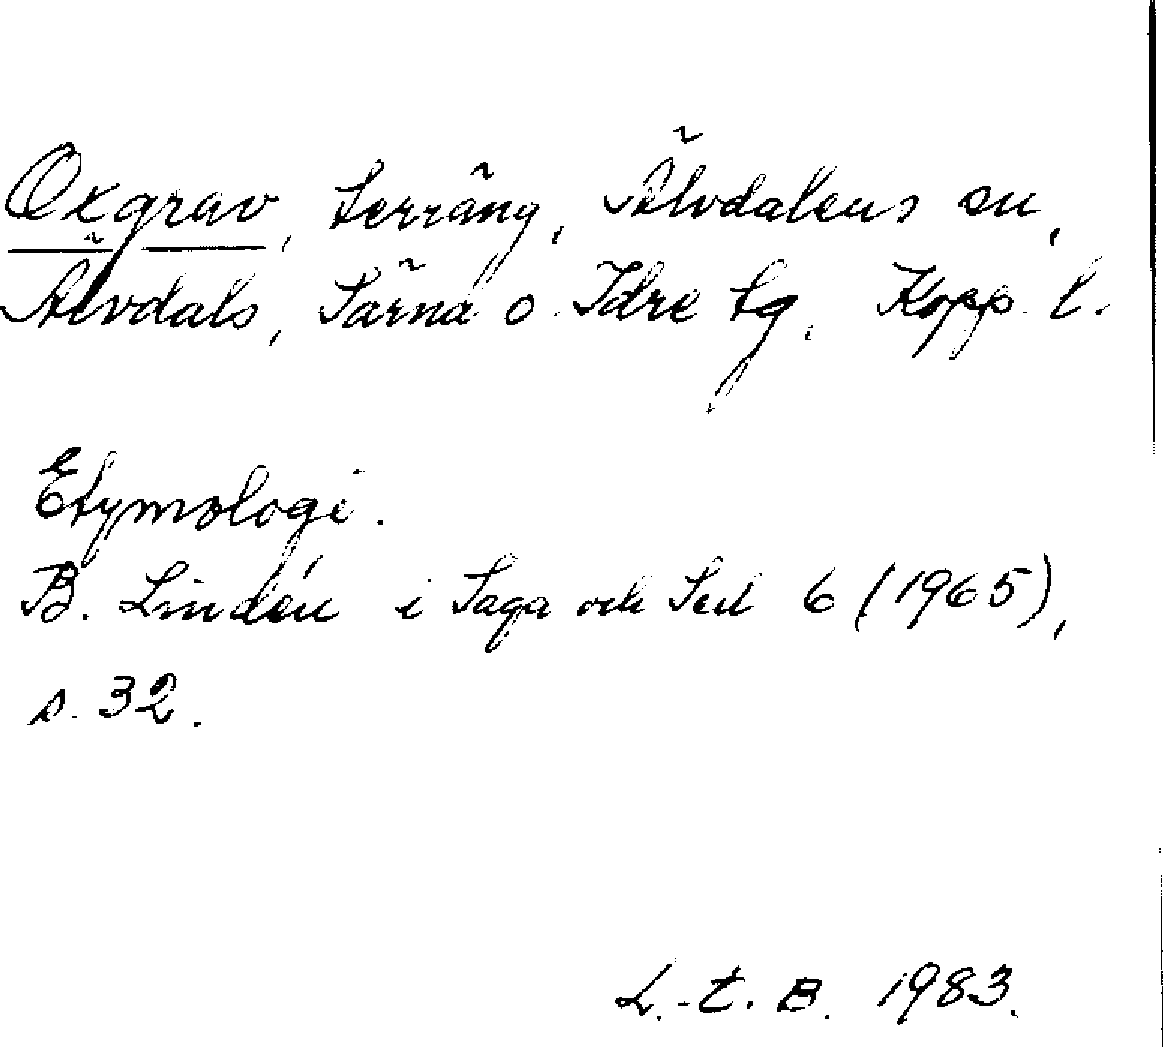 Oxgrav, terräng, Älvdalens sn,
Älvdals, Särna o. Idre tg, Kopp. l.
Etymologi.
B. Lindén i Saga och Sed 6 (1965),
s. 32.
L.-t. B. 1983.